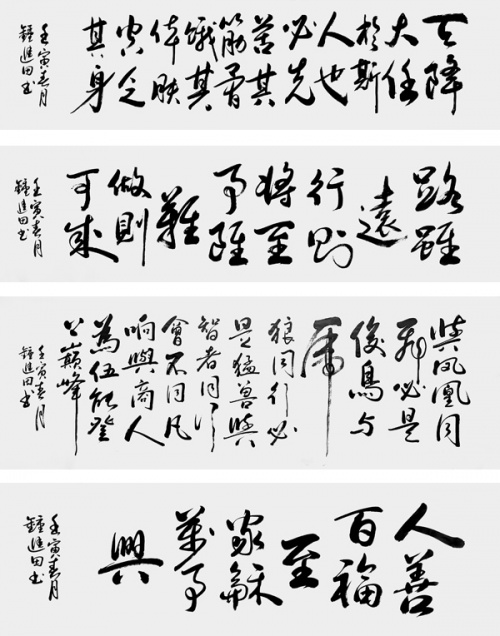 天降
大任
於斯
人也
必先
苦其
筋骨
餓其
体肤
空乏
其身
壬寅春月
鍾進田书
路雖
遠
行則
將至
事雖
難
做則
可成
壬寅春月
鍾進田书
與鳳凰同
飛必是
俊鳥与
虎
狼同行必
是猛兽與
智者同行
會不同凡
响與商人
為伍能登
上巔峰
壬寅春月
鍾進田书
人善
百福
至
家和
萬事
興
壬寅春月
鍾進田书